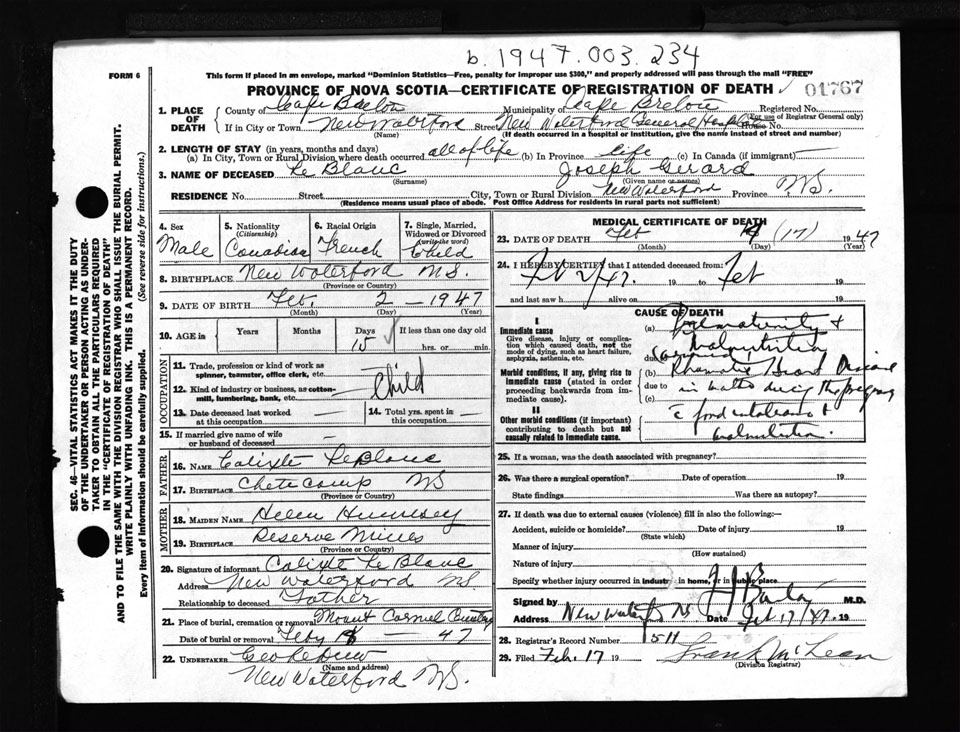 b. 1947.003.234
FORM 6
This form if placed in an envelope, marked "Dominion Statistics—Free, penalty for improper use $300," and properly addressed will pass through the mail "FREE"
PROVINCE OF NOVA SCOTIA—CERTIFICATE OF REGISTRATION OF DEATH 01767
1. PLACE OF DEATH County of Cape Breton Municipality of Cape Breton Registered No.
(For use of Registrar General only)
If in City or Town New Waterford Street New Waterford General Hospital House No.
(Name) (If death occurred in a hospital or institution, give the name instead of street and number)
2. LENGTH OF STAY (in years, months and days)
(a) In City, Town or Rural Division where death occurred all of life (b) In Province life (c) In Canada (if immigrant) —
3. NAME OF DECEASED Le Blanc Joseph Girard
(Surname) (Given name or names)
RESIDENCE No. Street City, Town or Rural Division New Waterford Province N.S.
(Residence means usual place of abode. Post Office Address for residents in rural parts not sufficient)
SEC. 46—VITAL STATISTICS ACT MAKES IT THE DUTY
OF THE UNDERTAKER OR PERSON ACTING AS UNDER-
TAKER TO OBTAIN ALL THE PARTICULARS REQUIRED
IN THE "CERTIFICATE OF REGISTRATION OF DEATH"
AND TO FILE THE SAME WITH THE DIVISION REGISTRAR WHO SHALL ISSUE THE BURIAL PERMIT.
WRITE PLAINLY WITH UNFADING INK. THIS IS A PERMANENT RECORD.
Every item of information should be carefully supplied. (See reverse side for instructions.)
4. Sex 5. Nationality 6. Racial Origin 7. Single, Married, Widowed or Divorced
(Citizenship) (write the word)
Male Canadian French Child
8. BIRTHPLACE New Waterford N.S.
(Province or Country)
9. DATE OF BIRTH Feb. 2 – 1947
(Month) (Day) (Year)
10. AGE in Years Months Days If less than one day old
15 hrs. or min.
OCCUPATION
11. Trade, profession or kind of work as spinner, teamster, office clerk, etc.
Child
12. Kind of industry or business, as cotton-mill, lumbering, bank, etc.
13. Date deceased last worked at this occupation — 14. Total yrs. spent in this occupation —
15. If married give name of wife or husband of deceased —
FATHER
16. NAME Calixte LeBlanc
17. BIRTHPLACE Cheticamp NS
(Province or Country)
MOTHER
18. MAIDEN NAME Helen
19. BIRTHPLACE Reserve Mines
(Province or Country)
20. Signature of informant Calixte Le Blanc
Address New Waterford N.S.
Relationship to deceased Father
21. Place of burial, cremation or removal Mount Carmel Cemetery
Date of burial or removal Feby — 47
22. UNDERTAKER Geo
(Name and address)
New Waterford N.S.
MEDICAL CERTIFICATE OF DEATH
23. DATE OF DEATH Feb (17) 1947
(Month) (Day) (Year)
24. I HEREBY CERTIFY that I attended deceased from:
Feb 2/47. 19 to Feb 19
and last saw h alive on 19
CAUSE OF DEATH
I
Immediate cause
Give disease, injury or complication which caused death, not the mode of dying, such as heart failure, asphyxia, asthenia, etc.
(a) Prematurity &
Malnutrition
due
Morbid conditions, if any, giving rise to immediate cause (stated in order proceeding backwards from immediate cause).
(b) Rheumatic Heart Disease
due to in mother during the pregnancy
(c)
II
Other morbid conditions (if important) contributing to death but not causally related to immediate cause.
c̄ food intolerance &
malnutrition.
25. If a woman, was the death associated with pregnancy?
26. Was there a surgical operation? Date of operation 19
State findings Was there an autopsy?
27. If death was due to external causes (violence) fill in also the following:—
Accident, suicide or homicide? Date of injury 19
(State which)
Manner of injury
(How sustained)
Nature of injury
Specify whether injury occurred in industry in home, or in public place
Signed by M.D.
Address New Waterford NS Date Feb 17/47. 19
28. Registrar's Record Number 1511
29. Filed Feb. 17 19 Frank McLean
(Division Registrar)